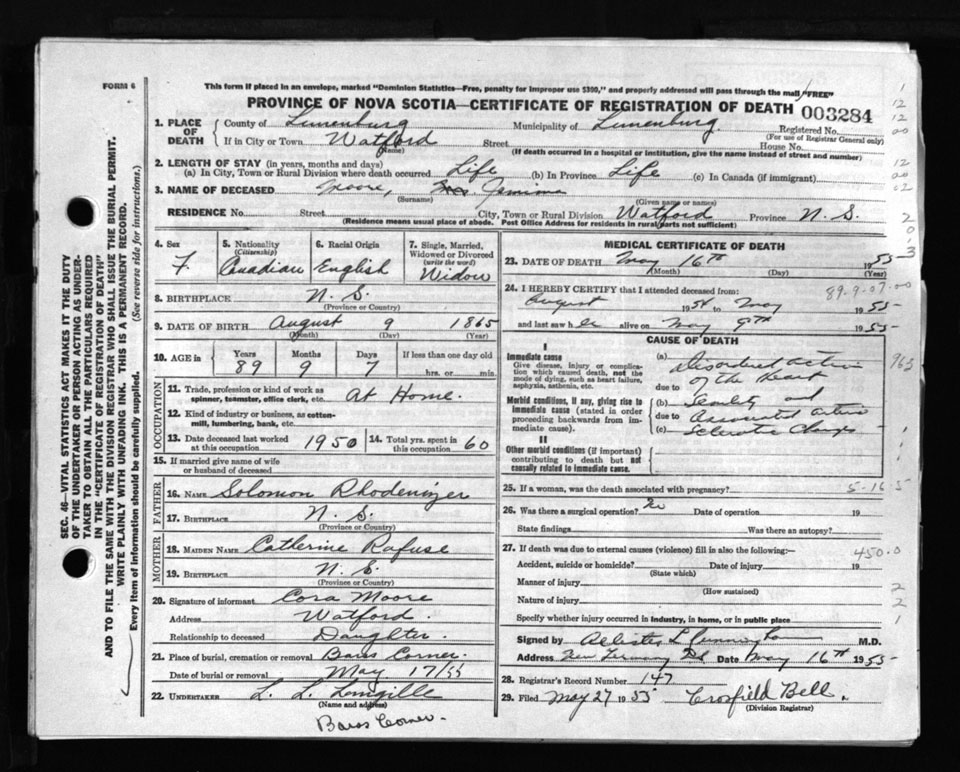 FORM 6
This form if placed in an envelope, marked "Dominion Statistics—Free, penalty for improper use $300," and properly addressed will pass through the mail "FREE"
PROVINCE OF NOVA SCOTIA—CERTIFICATE OF REGISTRATION OF DEATH 003284
1. PLACE OF DEATH County of Lunenburg Municipality of Lunenburg Registered No.
(For use of Registrar General only)
If in City or Town Watford Street House No.
(Name) (If death occurred in a hospital or institution, give the name instead of street and number)
2. LENGTH OF STAY (in years, months and days)
(a) In City, Town or Rural Division where death occurred Life (b) In Province Life (c) In Canada (if immigrant)
3. NAME OF DECEASED Moore, Mrs. Jemima
(Surname) (Given name or names)
RESIDENCE No. Street City, Town or Rural Division Watford Province N. S.
(Residence means usual place of abode. Post Office Address for residents in rural parts not sufficient)
4. Sex F.
5. Nationality (Citizenship) Canadian
6. Racial Origin English
7. Single, Married, Widowed or Divorced (write the word) Widow
8. BIRTHPLACE N. S.
(Province or Country)
9. DATE OF BIRTH August 9 1865
(Month) (Day) (Year)
10. AGE in Years Months Days If less than one day old
89 9 7 hrs. or min.
OCCUPATION
11. Trade, profession or kind of work as spinner, teamster, office clerk, etc. At Home.
12. Kind of industry or business, as cotton-mill, lumbering, bank, etc.
13. Date deceased last worked at this occupation 1950
14. Total yrs. spent in this occupation 60
15. If married give name of wife or husband of deceased
FATHER
16. NAME Solomon Rhodenizer
17. BIRTHPLACE N. S.
(Province or Country)
MOTHER
18. MAIDEN NAME Catherine Rafuse
19. BIRTHPLACE N. S.
(Province or Country)
20. Signature of informant Cora Moore
Address Watford.
Relationship to deceased Daughter.
21. Place of burial, cremation or removal Barss Corner.
Date of burial or removal May 17/55
22. UNDERTAKER L. L. Langille
(Name and address)
Barss Corner.
MEDICAL CERTIFICATE OF DEATH
23. DATE OF DEATH May 16th 1955
(Month) (Day) (Year)
24. I HEREBY CERTIFY that I attended deceased from: 89-9-07-00
August 1954 May 1955
and last saw her alive on May 9th 1955
CAUSE OF DEATH
I
Immediate cause
Give disease, injury, or complication which caused death, not the mode of dying, such as heart failure, asphyxia, asthenia, etc.
Morbid conditions, if any, giving rise to immediate cause (stated in order proceeding backwards from immediate cause).
II
Other morbid conditions (if important) contributing to death but not causally related to immediate cause.
(a) Disordered action
of the Heart
due to
(b) Senility and
due to Associated Arterio
(c) Sclerotic Changes
25. If a woman, was the death associated with pregnancy? 5-16-5
26. Was there a surgical operation? No Date of operation 19
State findings Was there an autopsy?
27. If death was due to external causes (violence) fill in also the following:— 450.0
Accident, suicide or homicide? Date of injury 19
(State which)
Manner of injury
(How sustained)
Nature of injury
Specify whether injury occurred in industry, in home, or in public place
Signed by L Cunningham M.D.
Address New Germany Date May 16th 1955
28. Registrar's Record Number 147
29. Filed May 27 1955 Crosfield Bell.
(Division Registrar)
SEC. 46—VITAL STATISTICS ACT MAKES IT THE DUTY
OF THE UNDERTAKER OR PERSON ACTING AS UNDER-
TAKER TO OBTAIN ALL THE PARTICULARS REQUIRED
IN THE "CERTIFICATE OF REGISTRATION OF DEATH"
AND TO FILE THE SAME WITH THE DIVISION REGISTRAR WHO SHALL ISSUE THE BURIAL PERMIT.
WRITE PLAINLY WITH UNFADING INK. THIS IS A PERMANENT RECORD.
Every item of information should be carefully supplied. (See reverse side for instructions.)